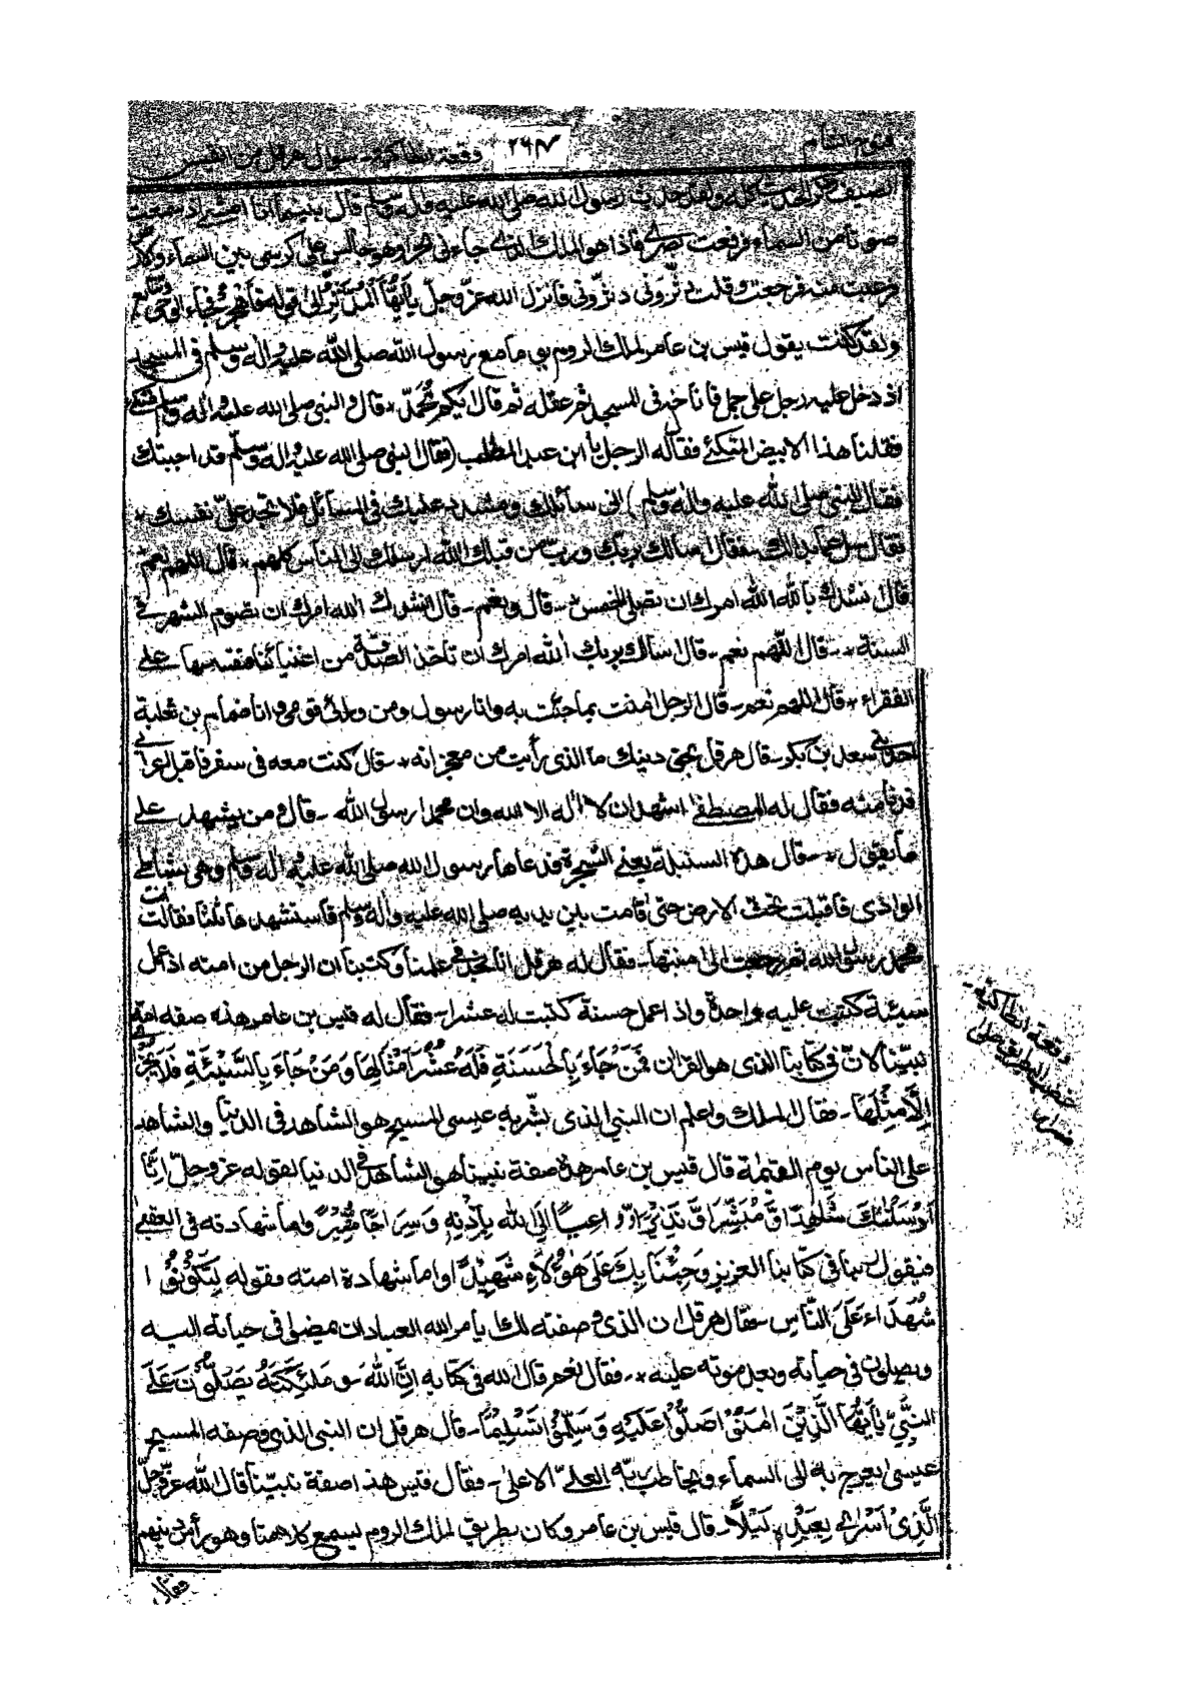 فتوح الشام
٢٦٧
وقعة انطاكية - سوال هرقل من القيس
الصيف كل الحديث كله ولقد حدث رسول الله صلى الله عليه وآله وسلم قال بينما انا امشى اذ سمعت
صوتا من السماء فرفعت بصرى فاذا هو الملك الذى جاءنى بحرا وهو جالس على كرسى بين السماء والارض
فرعبت منه فرجعت وقلت دثرونى دثرونى فانزل الله عز وجل يٰاَيُّهَا الْمُدَّثِّرُ الى قوله فَاهْجُرْ فجاء الوحى وتتابع
ولقد كنت يقول قيس بن عامر لملك الروم يوما مع رسول الله صلى الله عليه وآله وسلم فى المسجد
اذ دخل عليه رجل على جمل فاناخه فى المسجد ثم عقله ثم قال ايكم محمد * قال والنبى صلى الله عليه وآله وسلم متكئ
فقلنا هذا الابيض المتكئ فقال له الرجل يا ابن عبد المطلب (فقال النبى صلى الله عليه وآله وسلم قد اجبتك
فقال للنبى صلى الله عليه وآله وسلم) انى سائلك ومشدد عليك فى المسائل فلا تجد علىّ نفسك *
فقال سل عما بدالك - فقال اسالك بربك ورب من قبلك الله ارسلك الى الناس كلهم * قال اللهم نعم
قال انشدك بالله الله امرك ان تصلى الخمس - قال ونعم - قال انشدك الله امرك ان تصوم الشهر فى
السنة * - قال اللّهم نعم - قال اسالك بربك الله امرك ان تاخذ الصدقة من اغنيائنا فتقسمها على
الفقراء * قال اللهم نعم - قال الرجل امنت بما جئت به وانا رسول ومن ورائى قومى وانا ضمام بن ثعلبة
احد بنى سعد بن بكر - قال هرقل بحق دينك ما الذى رأيت من معجزاته * - قال كنت معه فى سفر فاقبل اعرابى
فدنا منه فقال له المصطفى اشهد ان لا اله الا الله وان محمدا رسول الله - قال ومن يشهد على
ما يقول * - قال هذه السنبلة يعنى الشجرة فدعاها رسول الله صلى الله عليه وآله وسلم وهى بشاطى
الوادى فاقبلت تخث الارض حتى قامت بين يديه صلى الله عليه وآله وسلم فاستشهدها ثلثا فقالت انت
محمد رسول الله ثم رجعت الى منبتها - فقال له هرقل انا نجد فى علمنا وكتبنا ان الرجل من امته اذ عمل
سيئة كتبت عليه بواحدة واذ اعمل حسنة كتبت له عشرا - فقال له قيس بن عامر هذه صفه امة
نبينا لان فى كتابنا الذى هو القران فَمَنْ جَاءَ بِالْحَسَنَةِ فَلَهُ عَشْرُ اَمْثَالِهَا وَمَنْ جَاءَ بِالسَّيِّئَةِ فَلَا يُجْزٰى
اِلَّا مِثْلَهَا - فقال الملك واعلم ان النبى الذى بشر به عيسى المسيح هو الشاهد فى الدنيا والشاهد
على الناس يوم القيمة قال قيس بن عامر هذه صفة نبينا هو الشاهد فى الدنيا لقوله عز وجل اِنَّا
اَرْسَلْنٰكَ شَاهِدًا وَّمُبَشِّرًا وَّنَذِيْرًا وَّدَاعِيًا اِلَى اللهِ بِاِذْنِهٖ وَسِرَاجًا مُّنِيْرًا واما شهادته فى العقبى
فيقول ربنا فى كتابنا العزيز وَجِئْنَا بِكَ عَلٰى هٰؤُلَاءِ شَهِيْدًا واما شهادة امته فقوله لِيَكُوْنُوْا
شُهَدَاءَ عَلَى النَّاسِ - فقال هرقل ان الذى وصفته لك يامر الله العباد ان يمضوا فى حياته اليه
ويصلون فى حياته وبعد موته عليه * - فقال نعم قال الله فى كتابه اِنَّ اللهَ وَمَلٰئِكَتَهٗ يُصَلُّوْنَ عَلَى
النَّبِىِّ يٰاَيُّهَا الَّذِيْنَ اٰمَنُوْا صَلُّوْا عَلَيْهِ وَسَلِّمُوْا تَسْلِيْمًا - قال هرقل ان النبى الذى وصفه المسيح
عيسى يعرج به الى السماء ويخاطب ربه العلىّ الاعلى - فقال قيس هذه اصفة نبينا قال الله عز وجل
الَّذِىْ اَسْرٰى بِعَبْدِهٖ لَيْلًا - قال قيس بن عامر وكان بطريق لملك الروم يسمع كلامنا وهو رأس دينهم
وقعة انطاكية -
غضب البطريق على
ضرار
فقال